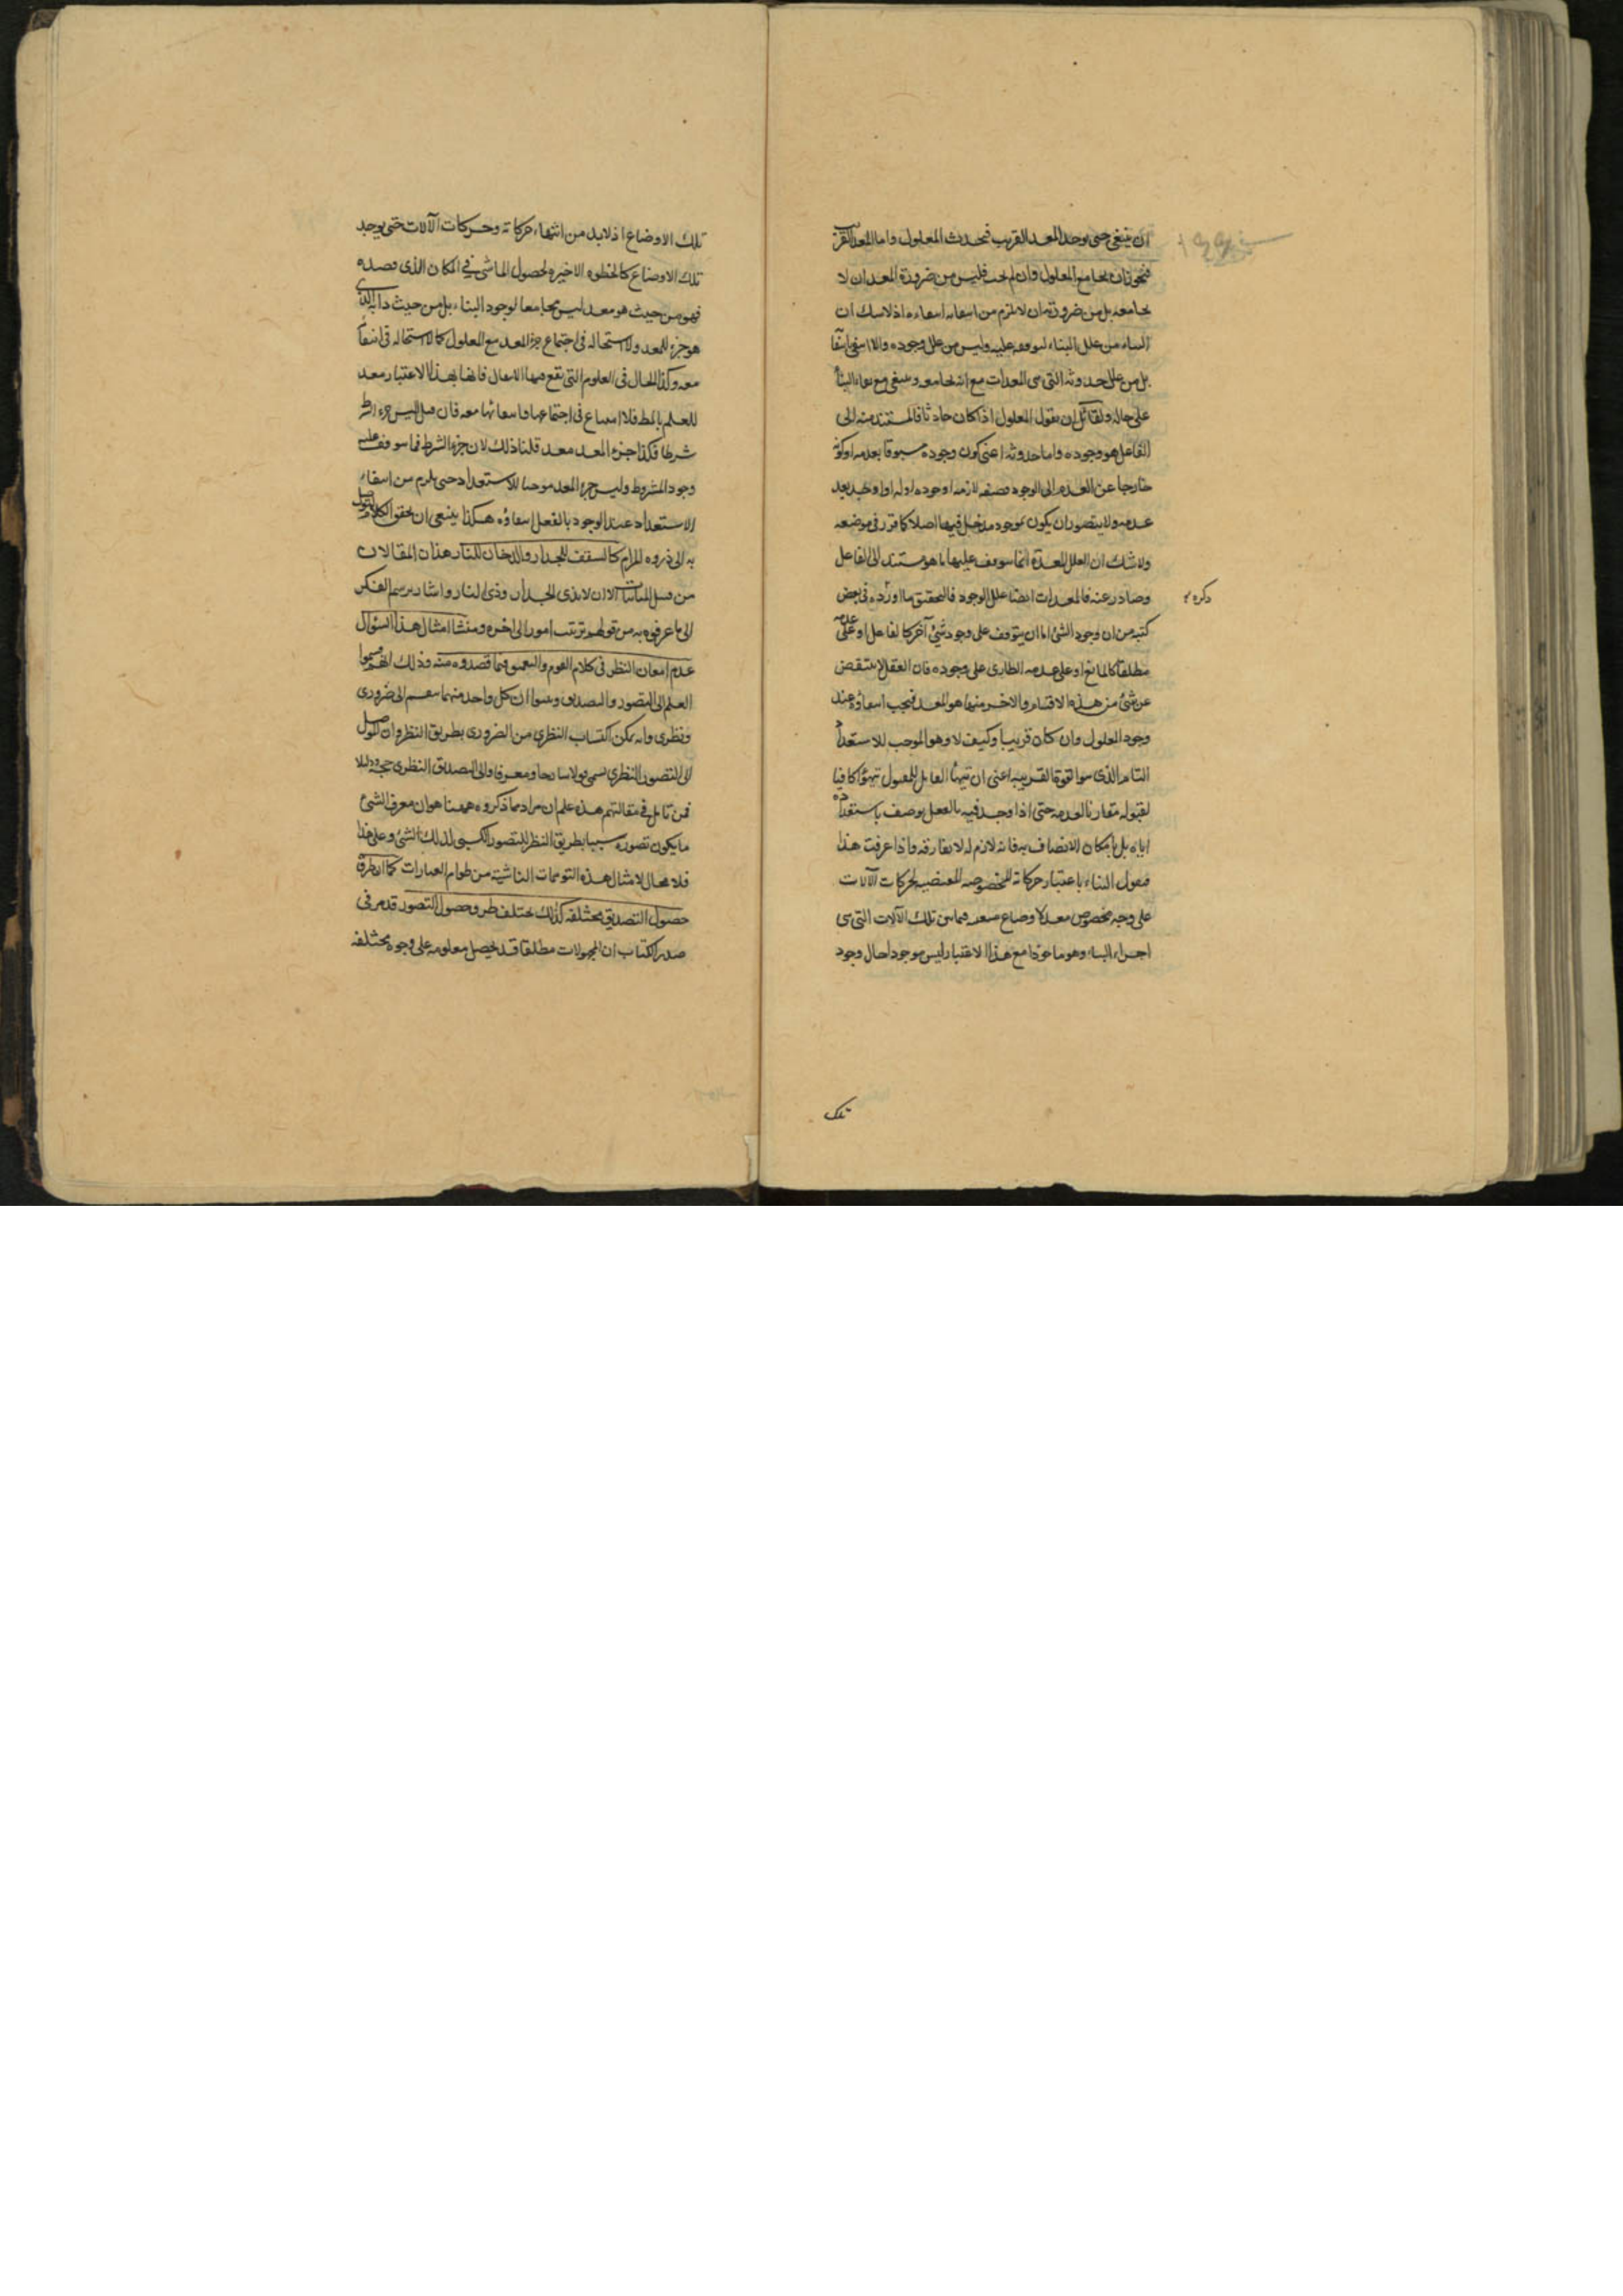 ان ينتفى حتى يوجد المعد القريب فيحدث المعلول واما المعد القريب
فيجوز ان يجامع المعلول وان لم يجب فليس من ضرورة المعد ان لا
يجامعه بل من ضرورته ان لا يلزم من انتفائه انتفاءه اذ لا شك ان
البناء من علل البناء لتوقفه عليه وليس من علل وجوده والا انتفى بانتفائه
بل من علل حدوثه التى هى المعدات مع انه يجامعه وينتفى مع بقاء البناء
على حاله ولقائل ان يقول المعلول اذا كان حادثا فالمستند منه الى
الفاعل هو وجوده واما حدوثه اعنى كون وجوده مسبوقا بعدمه او كونه
خارجا عن العدم الى الوجود فصفة لازمة لوجوده
عدمه ولا يتصور ان يكون لموجود مدخل فيها اصلا كما قرر فى موضعه
ولا شك ان العلل المعدة انما يتوقف عليها ما هو مستند الى الفاعل
وصادر عنه فالمعدات ايضا علل الوجود فالتحقيق ما اورده فى بعض
ذكره
كتبه من ان وجود الشئ اما ان يتوقف على وجود شئ آخر كالفاعل او على عدمه
مطلقا كالمانع او على عدمه الطارى على وجوده فان العقل لا ينقبض
عن شئ من هذه الاقسام والاخير منها هو المعد فيجب انتفاؤه عند
وجود المعلول وان كان قريبا وكيف لا وهو الموجب للاستعداد
التام الذى هو القوة القريبة اعنى ان تهيأ القابل للمقبول تهيؤا كافيا
لقبوله مقارنا لعدمه حتى اذا وجد فيه بالفعل لم يوصف باستعداده
اياه بل بامكان الاتصاف به فانه لازم له لا يفارقه واذا عرفت هذا
فنقول البناء باعتبار حركاته المخصوصة المقتضية لحركات الآلات
على وجه مخصوص معد لاوضاع معينة فيما بين تلك الآلات التى هى
اجزاء البناء وهو ماخوذا مع هذا الاعتبار ليس موجودا حال وجود
تلك
تلك الاوضاع اذ لا بد من انتهاء حركاته وحركات الآلات حتى يوجد
تلك الاوضاع كالخطوة الاخيرة لحصول الماشى فى المكان الذى قصده
فهو من حيث هو معد ليس مجامعا لوجود البناء بل من حيث ذاته الذى
هو جزء للمعد ولا استحالة فى اجتماع جزء المعد مع المعلول كما لا استحالة فى انتفائه
معه وكذا الحال فى العلوم التى تقع فيها الانتقال فانها بهذا الاعتبار معد
للعلم بالمط فلا امتناع فى اجتماعها وانتفائها معه فان قيل اليس جزء الشرط
شرطا فكذا جزء المعد معد قلنا ذلك لان جزء الشرط مما يتوقف عليه
وجود المشروط وليس جزء المعد موجبا للاستعداد حتى يلزم من انتفاء
الاستعداد عند الوجود بالفعل انتفاؤه هكذا ينبغى ان يحقق الكلام ليتوصل
به الى ذروة المرام كالسقف للجدار والدخان للنار هذان المثالان
من قبيل المناسبات الا ان لا بذى الجدار وذى النار واشار برسم الفكر
الى ما عرفوه به من قولهم ترتيب امور الى اخره ومنشا امثال هذا السؤال
عدم امعان النظر فى كلام القوم والتعمق فيما قصدوه منه وذلك انهم قسموا
العلم الى التصور والتصديق وبينوا ان كل واحد منهما ينقسم الى ضرورى
ونظرى وانه يمكن اكتساب النظرى من الضرورى بطريق النظر وان الموصل
الى التصور النظرى يسمى قولا شارحا ومعرفا والى التصديق النظرى حجة ودليلا
فمن تامل فى مقالتهم هذه علم ان مرادهم مما ذكروه ههنا هو ان معرف الشئ
ما يكون تصوره سببا بطريق النظر للتصور الكسبى لذلك الشئ وعلى هذا
فلا مجال لامثال هذه التوهمات الناشئة من ظواهر العبارات كما ان طرق
حصول التصديق مختلفة كذلك يختلف طرق حصول التصور قد مر فى
صدر الكتاب ان المجهولات مطلقا قد يحصل معلومة على وجوه مختلفة